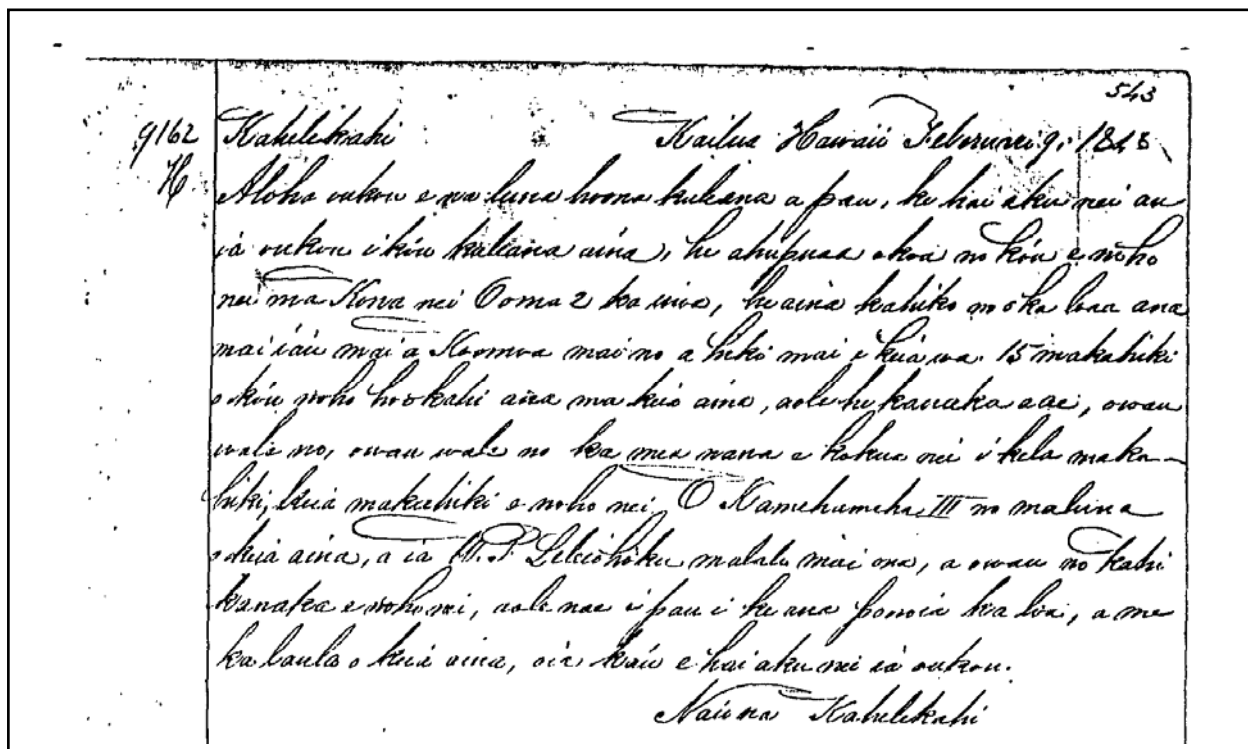 543
9162 Kahelekahi Kailua Hawaii Feberuari 9, 1848
H Aloha oukou e na luna hoona kuleana a pau, ke hai aku nei au
ia oukou i ko'u kuleana aina, he ahupuaa okoa no ko'u e noho
nei ma Kona nei Ooma 2 ka inoa, he aina kahiko no o ka loaa ana
mai ia'u mai a Koomoa mai no a hiki mai i keia wa. 15 makahiki
o ko'u noho hookahi ana ma keia aina, aole he kanaka e ae, owau
wale no, owau wale no ka mea nana e kokua nei i kela maka-
hiki, keia makahiki e noho nei. O Kamehameha III no maluna
o keia aina, a ia W.P. Leleiohoku malalo mai ona, a owau no kahi
kanaka e noho nei, aole nae i pau i ke ana ponoia ka loa, a me
ka laula o keia aina, oia ka'u e hai aku nei ia oukou.
Na'u na Kahelekahi